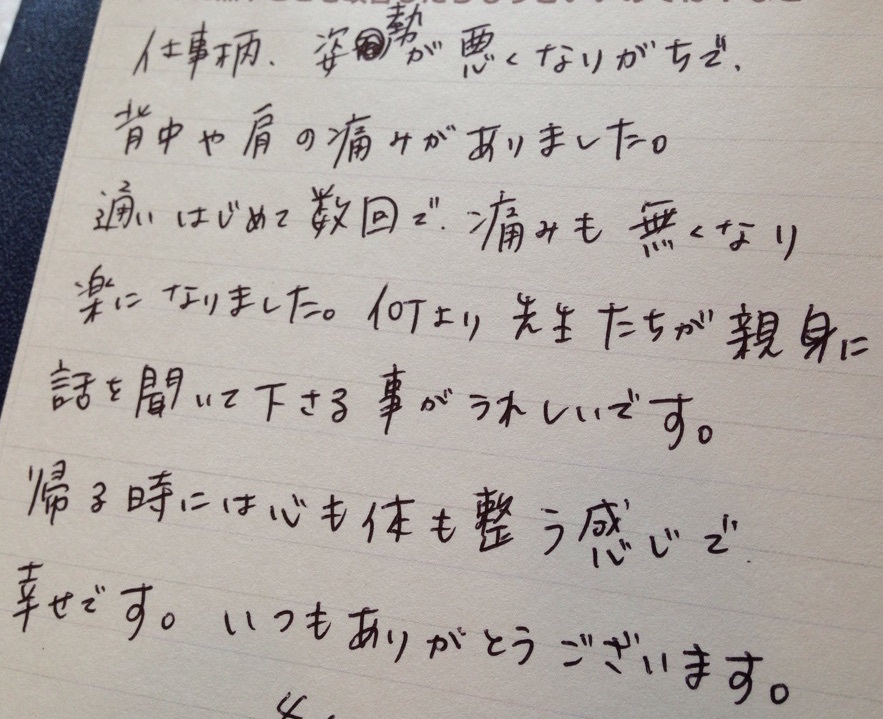 仕事柄、姿勢が悪くなりがちで、
背中や肩の痛みがありました。
通いはじめて数回で、痛みも無くなり
楽になりました。何より先生たちが親身に
話を聞いて下さる事がうれしいです。
帰る時には心も体も整う感じで
幸せです。いつもありがとうございます。